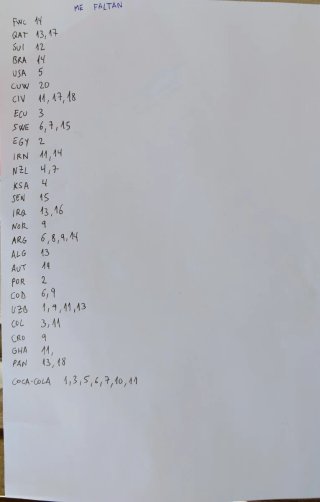 ME FALTAN
FWC 14
QAT 13,17
SUI 12
BRA 14
USA 5
CUW 20
CIV 11,17,18
ECU 3
SWE 6,7,15
EGY 2
IRN 11,14
NZL 4,7
KSA 4
SEN 15
IRQ 13,16
NOR 9
ARG 6,8,9,14
ALG 13
AUT 11
POR 2
COD 6,9
UZB 1,9,11,13
COL 3,11
CRO 9
GHA 11,
PAN 13,18
COCA-COLA 1,3,5,6,7,10,11